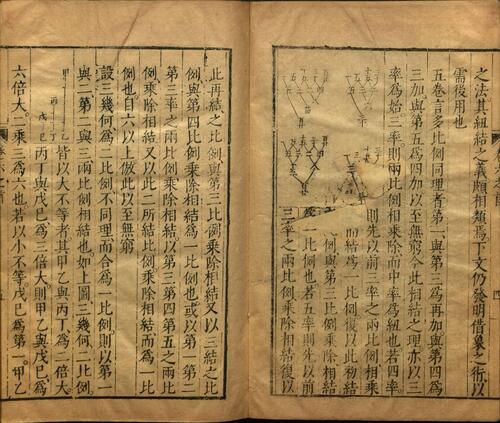 之法其紐結之義頗相類焉下文仍發明借象之術以
需後用也
五卷言多比例同理者第一與第三爲再加與第四爲
三加與第五爲四加以至無窮今此相結之理亦以三
率爲始三率則兩比例相乘除而中率爲紐也若四率
則先以前三率之兩比例相乘
而結爲一比例復以此初結
比例與第三比例乘除而結
一比例也若五率則先以前
三率之兩比例乘除相結後以
此再結之比例與第三比例乘除相結又以三結之比
例與第四比例乘除相結爲一比例也或以第一第二
第三率之兩比例乘除相結以第三第四第五之兩比
例乘除相結又以此二所結比例乘除相結而爲一比
例也自六以上倣此以至無窮
設三幾何爲二比例不同理而合爲一比例則以第一
與二第二與三兩比例相結也如上圖三幾何二比例
皆以大不等者其甲乙與丙丁爲二倍大
丙丁與戊巳爲三倍大則甲乙與戊巳爲
六倍大二乘三爲六也若以小不等戊巳爲第一甲乙